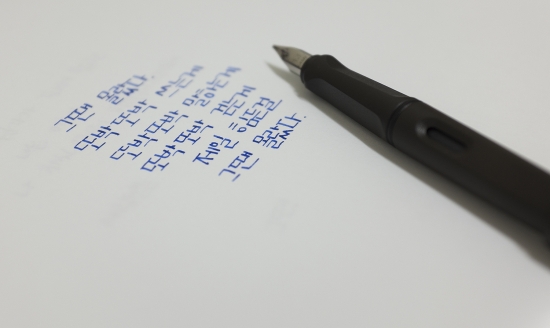 그땐 몰랐다.
또박또박 쓰는게
또박또박 말하는게
또박또박 걷는게
제일 힘든걸
그땐 몰랐다.